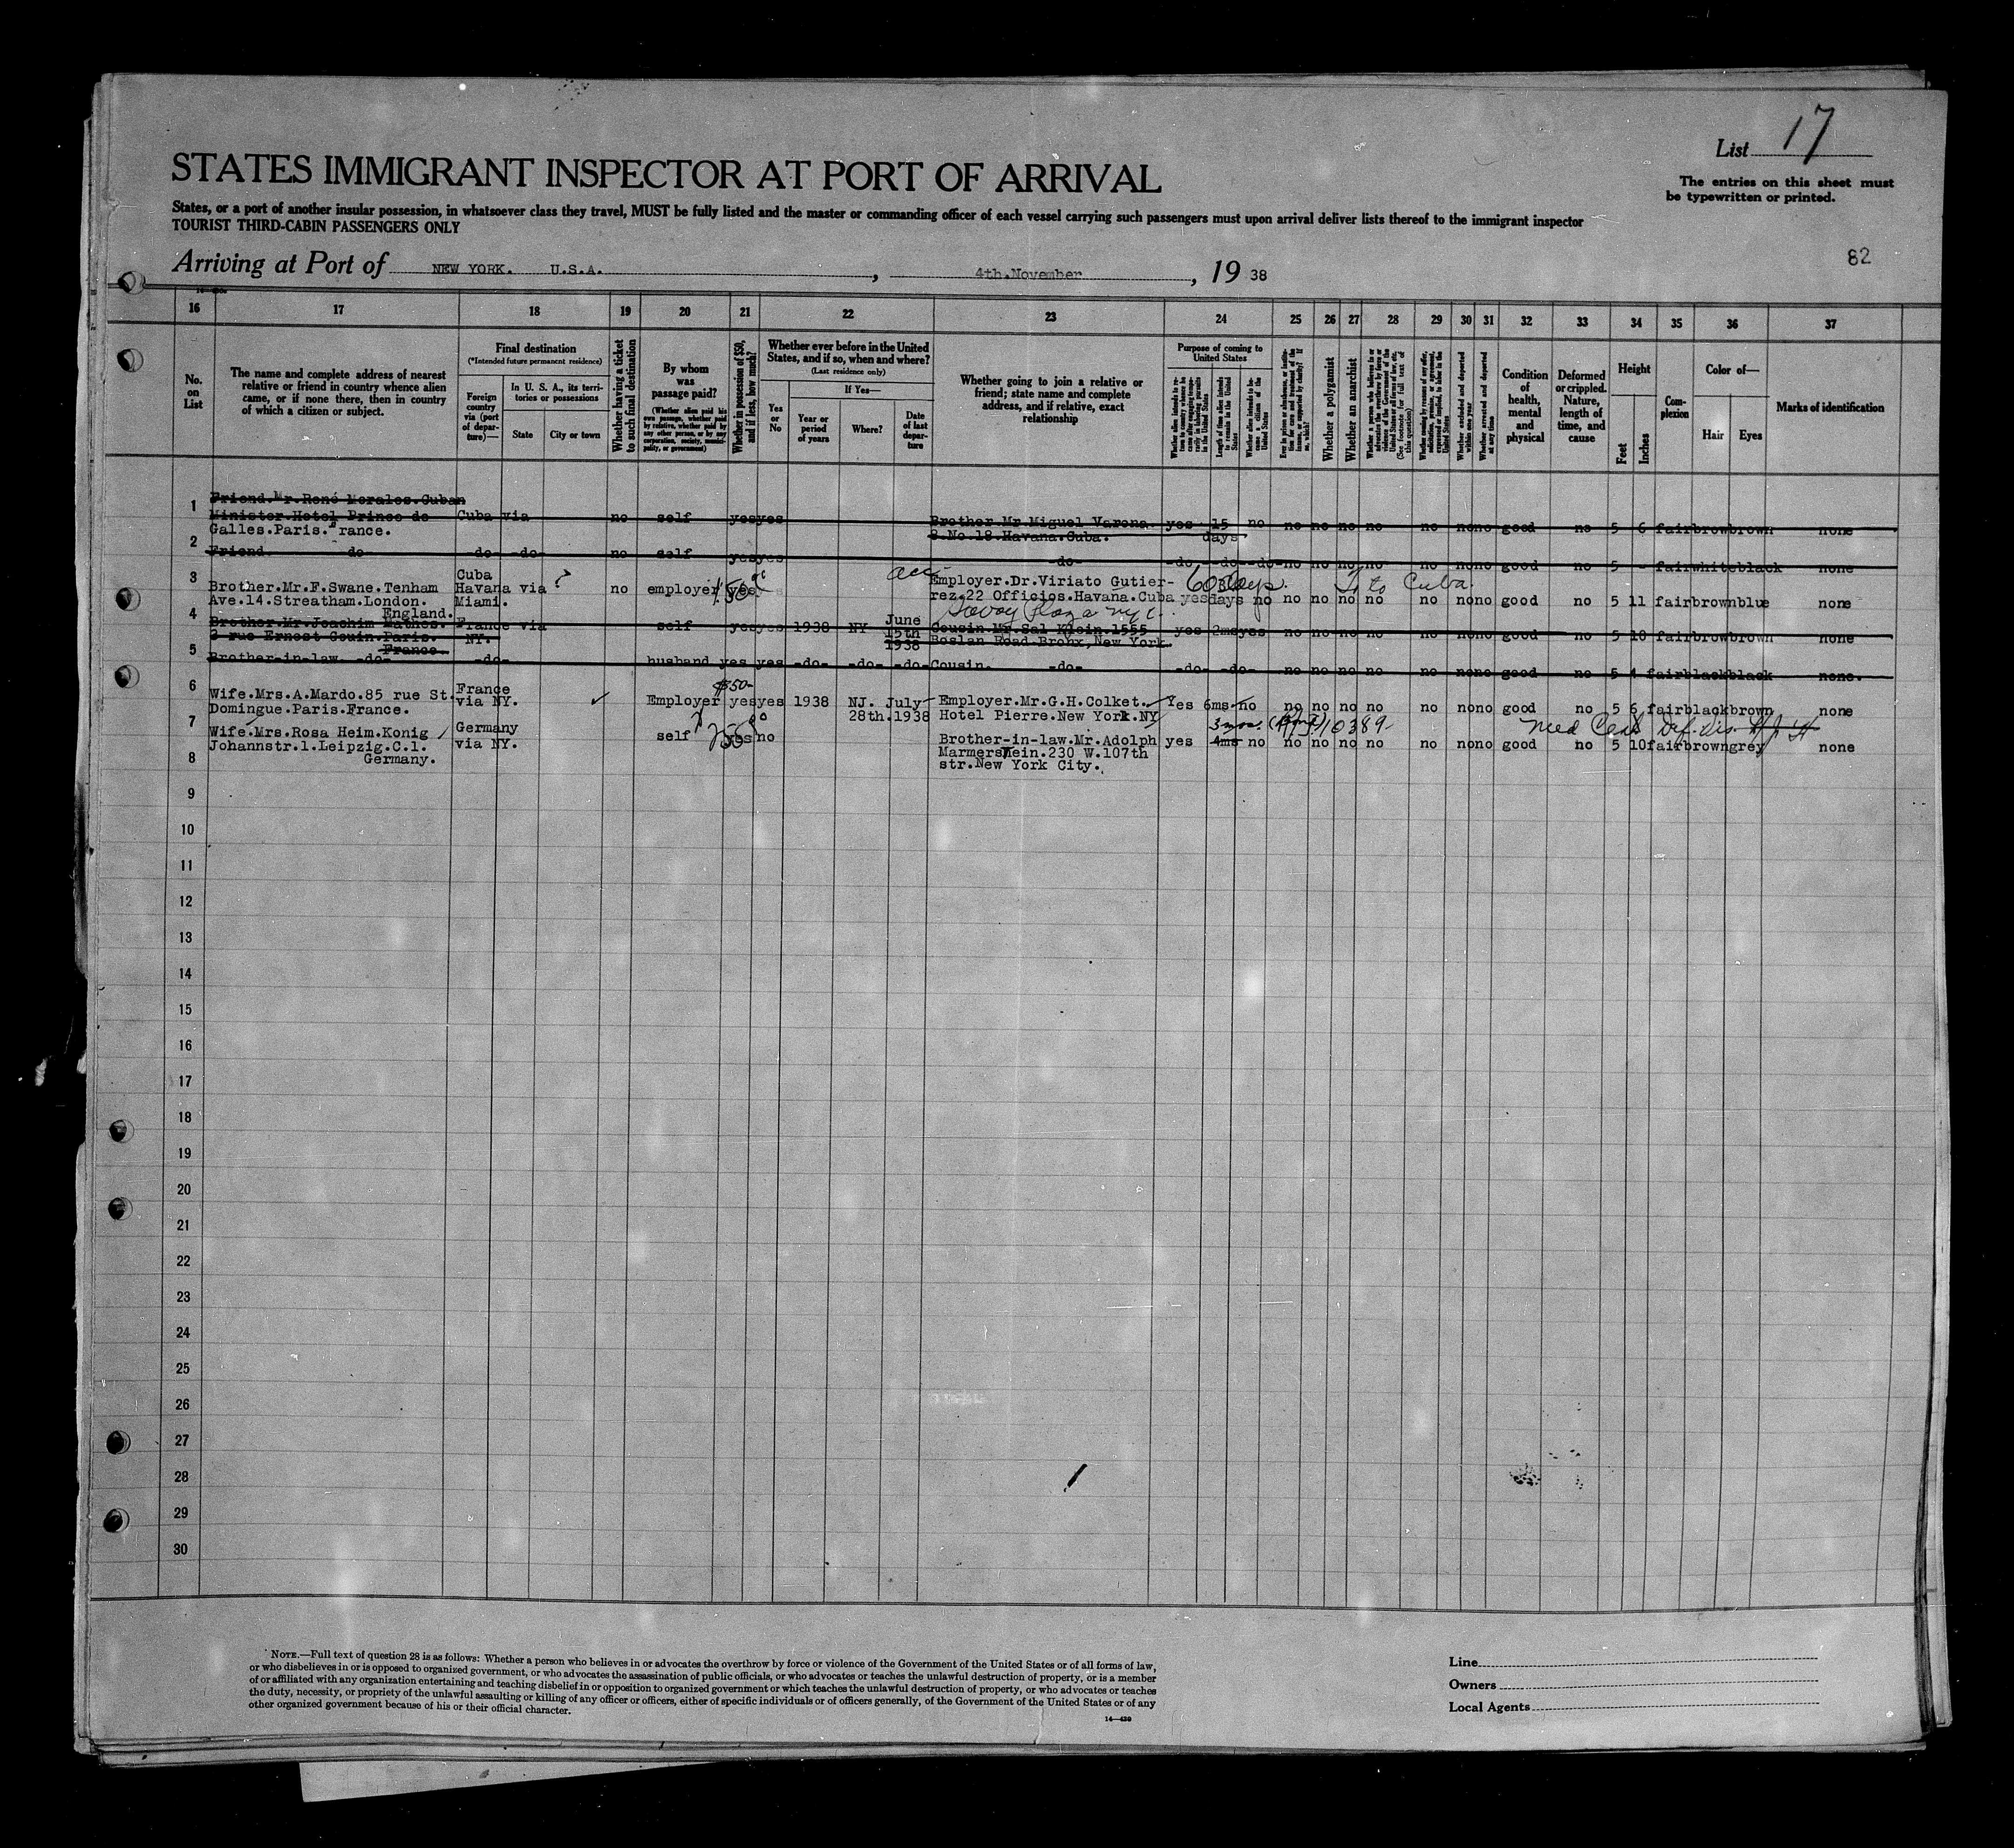 List 17
STATES IMMIGRANT INSPECTOR AT PORT OF ARRIVAL
The entries on this sheet must
be typewritten or printed.
States, or a port of another insular possession, in whatsoever class they travel, MUST be fully listed and the master or commanding officer of each vessel carrying such passengers must upon arrival deliver lists thereof to the immigrant inspector
TOURIST THIRD-CABIN PASSENGERS ONLY
82
Arriving at Port of NEW YORK. U.S.A. , 4th.November , 19 38
16 17 18 19 20 21 22 23 24 25 26 27 28 29 30 31 32 33 34 35 36 37
No. on List
The name and complete address of nearest
relative or friend in country whence alien
came, or if none there, then in country
of which a citizen or subject.
Final destination
(*Intended future permanent residence)
Foreign
country
via (port
of depar-
ture)—
In U. S. A., its terri-
tories or possessions
State
City or town
Whether having a ticket
to such final destination
By whom
was
passage paid?
(Whether alien paid his
own passage, whether paid
by relative, whether paid by
any other person, or by any
corporation, society, munici-
pality, or government)
Whether in possession of $50,
and if less, how much?
Whether ever before in the United
States, and if so, when and where?
(Last residence only)
Yes
or
No
If Yes—
Year or
period
of years
Where?
Date
of last
depar-
ture
Whether going to join a relative or
friend; state name and complete
address, and if relative, exact
relationship
Purpose of coming to
United States
Length of time alien intends
to remain in the United
States
Whether alien intends to be-
come a citizen of the
United States
Whether a polygamist
Whether an anarchist
(See footnote for full text of
this question)
Whether excluded and deported
within one year
Whether arrested and deported
at any time
Condition
of
health,
mental
and
physical
Deformed
or crippled.
Nature,
length of
time, and
cause
Height
Feet
Inches
Com-
plexion
Color of—
Hair
Eyes
Marks of identification
1 Friend.Mr.René Morales.Cuban
Minister.Hotel Prince de Cuba via no self yes yes Brother.Mr.Miguel Varona. yes 15 no no no no no no no no good no 5 6 fair brow brown none
Galles.Paris.France. 8.No.18.Havana.Cuba. days
2 Friend. -do- -do- -do- no self yes yes -do- -do- -do- -do- no no no no no no no good no 5 - fair white black none
3 Brother.Mr.F.Swane.Tenham Cuba Havana via ? no employer yes Employer.Dr.Viriato Gutier- 60 days. to Cuba.
Ave.14.Streatham.London. Miami. rez.22 Officios.Havana.Cuba yes days no no no no no no no no good no 5 11 fair brown blue none
England. Savoy Plaza nyc.
4 Brother.Mr.Joachim Mathes. France via self yes yes 1938 NY June Cousin.Mr.Sal Klein.1555 yes 2ms yes no no no no no no no good no 5 10 fair brow brown none
2 rue Ernest Gouin.Paris. NY. 15th Boslan Road.Bronx,New York
France. 1938
5 Brother-in-law. -do- -do- husband yes yes -do- -do- -do- Cousin. -do- -do- -do- no no no no no no no good no 5 4 fair black black none.
$50-
6 Wife.Mrs.A.Mardo.85 rue St. France Employer yes yes 1938 NJ. July Employer.Mr.G.H.Colket. Yes 6ms no no no no no no no no good no 5 6 fair black brown none
Domingue.Paris.France. via NY. 28th.1938 Hotel Pierre.New York.NY
3 mos. 10389
7 Wife.Mrs.Rosa Heim.Konig Germany self yes no Brother-in-law.Mr.Adolph yes 4ms no no no no no no no no good no 5 10 fair brown grey none
Johannstr.1.Leipzig.C.1. via NY. Marmerstein.230 W.107th
Germany. str.New York City.
8
9
10
11
12
13
14
15
16
17
18
19
20
21
22
23
24
25
26
27
28
29
30
NOTE.—Full text of question 28 is as follows: Whether a person who believes in or advocates the overthrow by force or violence of the Government of the United States or of all forms of law,
or who disbelieves in or is opposed to organized government, or who advocates the assassination of public officials, or who advocates or teaches the unlawful destruction of property, or is a member
of or affiliated with any organization entertaining and teaching disbelief in or opposition to organized government or which teaches the unlawful destruction of property, or who advocates or teaches
the duty, necessity, or propriety of the unlawful assaulting or killing of any officer or officers, either of specific individuals or of officers generally, of the Government of the United States or of any
other organized government because of his or their official character.
14—430
Line
Owners
Local Agents